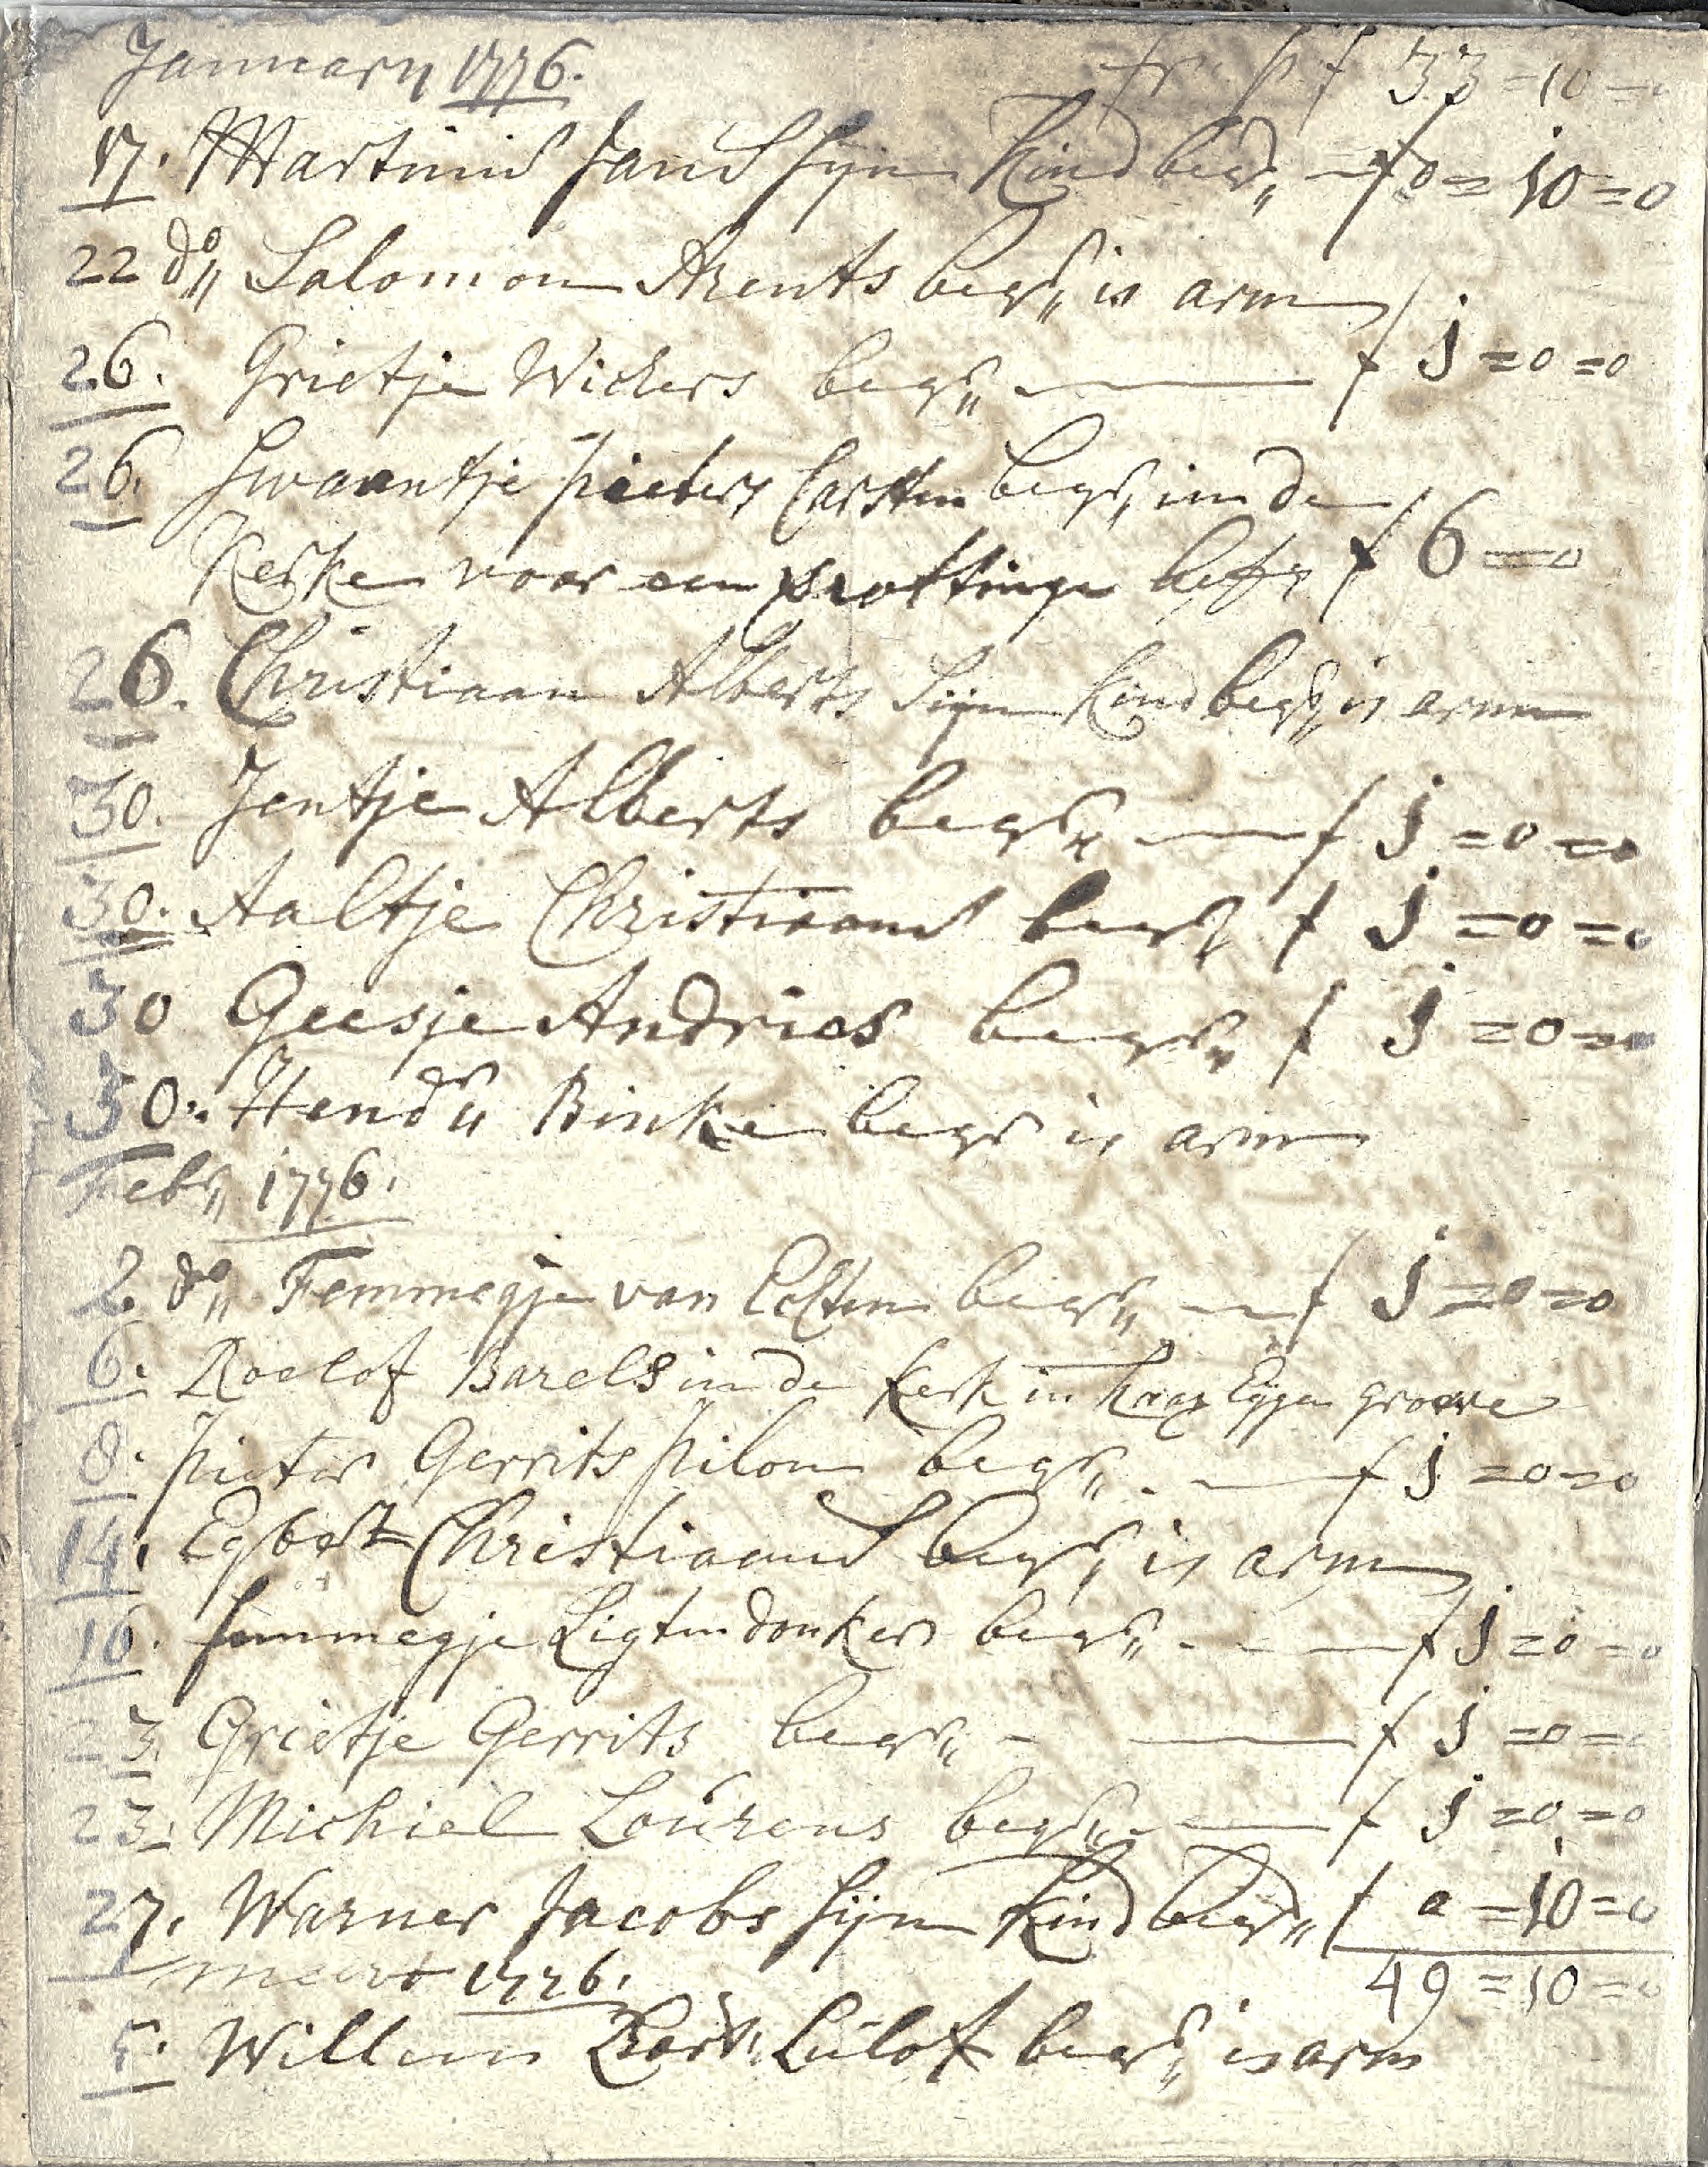 January 1776.
fr. p. f 33 = 10 = 0
17. Martinus Jans sijn kind begr„ — f 0 = 10 = 0
22 do„ Salomon Arents begr„ is arm
26. Grietje Wichers begr„ — f j = 0 = 0
26. Swaantje Pieters Carsten begr„ in de
Kerke voor een f 6 = 0
26. Christiaan Alberts Sijn kind begr„ is arm
30. Jentje Alberts begr„ — f j = 0 = 0
30. Aaltje Christiaans begr f j = 0 = 0
30 Geesje Andries begr„ f j = 0 = 0
30. Hendr„ Binke begr is arm
Febr„ 1776.
2. do„ Femmegje van Echten begr„ — f j = 0 = 0
6. Roelof Barels in de kerk in haar Eygen groeve
8. Pieter Gerrits Pilon begr„ — f j = 0 = 0
14. Egbert Christiaans begr„ is arm
16. Jemmegje Ligtendonker begr„ — f j = 0 = 0
23. Grietje Gerrits begr„ — f j = 0 = 0
23. Michiel Lourens begr„ — f j = 0 = 0
27. Warner Jacobs sijn kind begr„ f 0 = 10 = 0
49 = 10 = 0
meert 1776.
5. Willem Bart. Lulof begr„ is arm